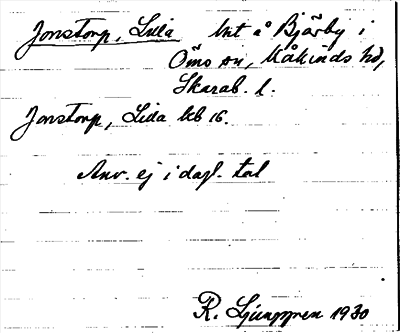 Jonstorp, Lilla Unt å Bjärby i
Öms sn, Kåkinds hd,
Skarab. l.
Jonstorp, Lida kb 16.
Anv. ej i dagl. tal
R. Ljunggren 1930